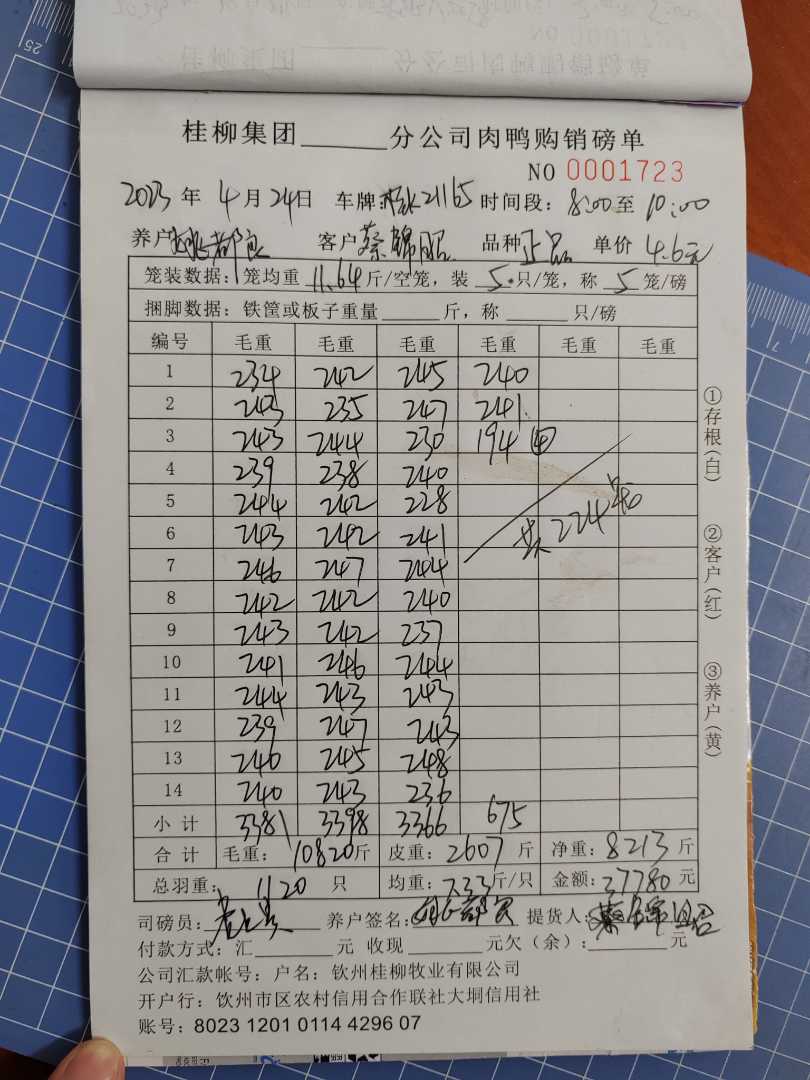 桂柳集团______分公司肉鸭购销磅单
NO 0001723
2023 年 4 月 24 日 车牌: 21165 时间段: 8:00 至 10:00
养户 客户 蔡锦昭 品种 正品 单价 4.6元
笼装数据: 笼均重 11.64 斤/空笼,装 5 只/笼,称 5 笼/磅
捆脚数据: 铁筐或板子重量______斤,称______只/磅
编号 毛重 毛重 毛重 毛重 毛重 毛重
1 234 242 245 240
2 243 235 247 241
3 243 244 230 194 ④
4 239 238 240
5 244 242 228
6 243 242 241
7 246 247 244
8 242 242 240
9 243 242 237
10 241 246 244
11 244 243 243
12 239 247 243
13 240 245 248
14 240 243 236
共224笼
小计 3381 3398 3366 675
合计 毛重: 10820斤 皮重: 2607 斤 净重: 8213 斤
总羽重: 1120 只 均重: 7.33斤/只 金额: 37780 元
司磅员: 养户签名: 提货人: 蔡锦昭
付款方式: 汇______元 收现______元欠(余):______元
公司汇款帐号: 户名: 钦州桂柳牧业有限公司
开户行: 饮州市区农村信用合作联社大垌信用社
账号: 8023 1201 0114 4296 07
①存根(白)
②客户(红)
③养户(黄)